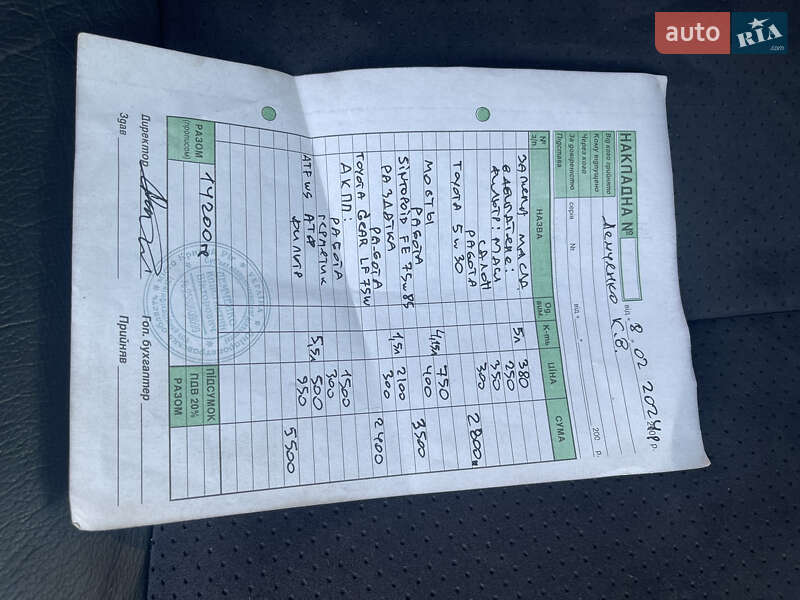 auto RIA.com
НАКЛАДНА №
від " 8 " 02 2024р
200 р.
Від кого прийнято
Кому відпущено Ленченко К.В.
Через кого
За довіреністю серія № від " 200 р.
Підстава
№ з/п НАЗВА Од. вим. К-ть ЦІНА СУМА
ЗАМЕНА МАСЛА
В ДВИГАТЕЛЕ: 5л 380
ФИЛЬТР: МАСЛ 250
САЛОН 350
РАБОТА 300
TOYOTA 5w30 2800
МОСТЫ
РАБОТА 4,15л 750
400 3500
75w85 1,5л 2100
РАЗДАТКА 300
РАБОТА 2400
TOYOTA GEAR LF 75W
АКПП:
РАБОТА 1500
ГЕРМЕТИК 300
ATF WS АТФ 5,5л 500
ФИЛЬТР 950 5500
РАЗОМ (прописом) 14200
ПІДСУМОК
ПДВ 20%
РАЗОМ
Директор
Гол. бухгалтер
Здав
Прийняв